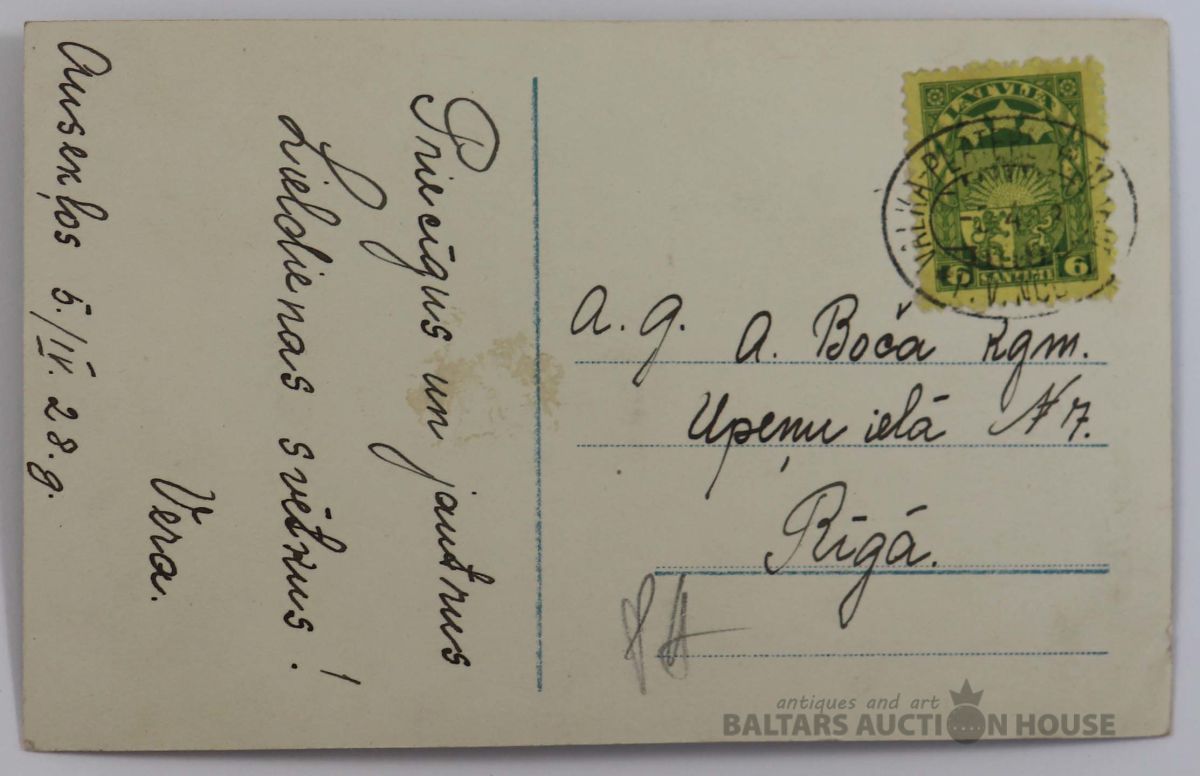 Priecīgus un jautrus
Lieldienas svētkus!
Vera.
Ausekļos 5./IV. 28. g.
LATVIJA
6 SANTIMI 6
A. g. A. Boča kgm.
Upeņu ielā № 7.
Rīgā.
antiques and art
BALTARS AUCTION HOUSE